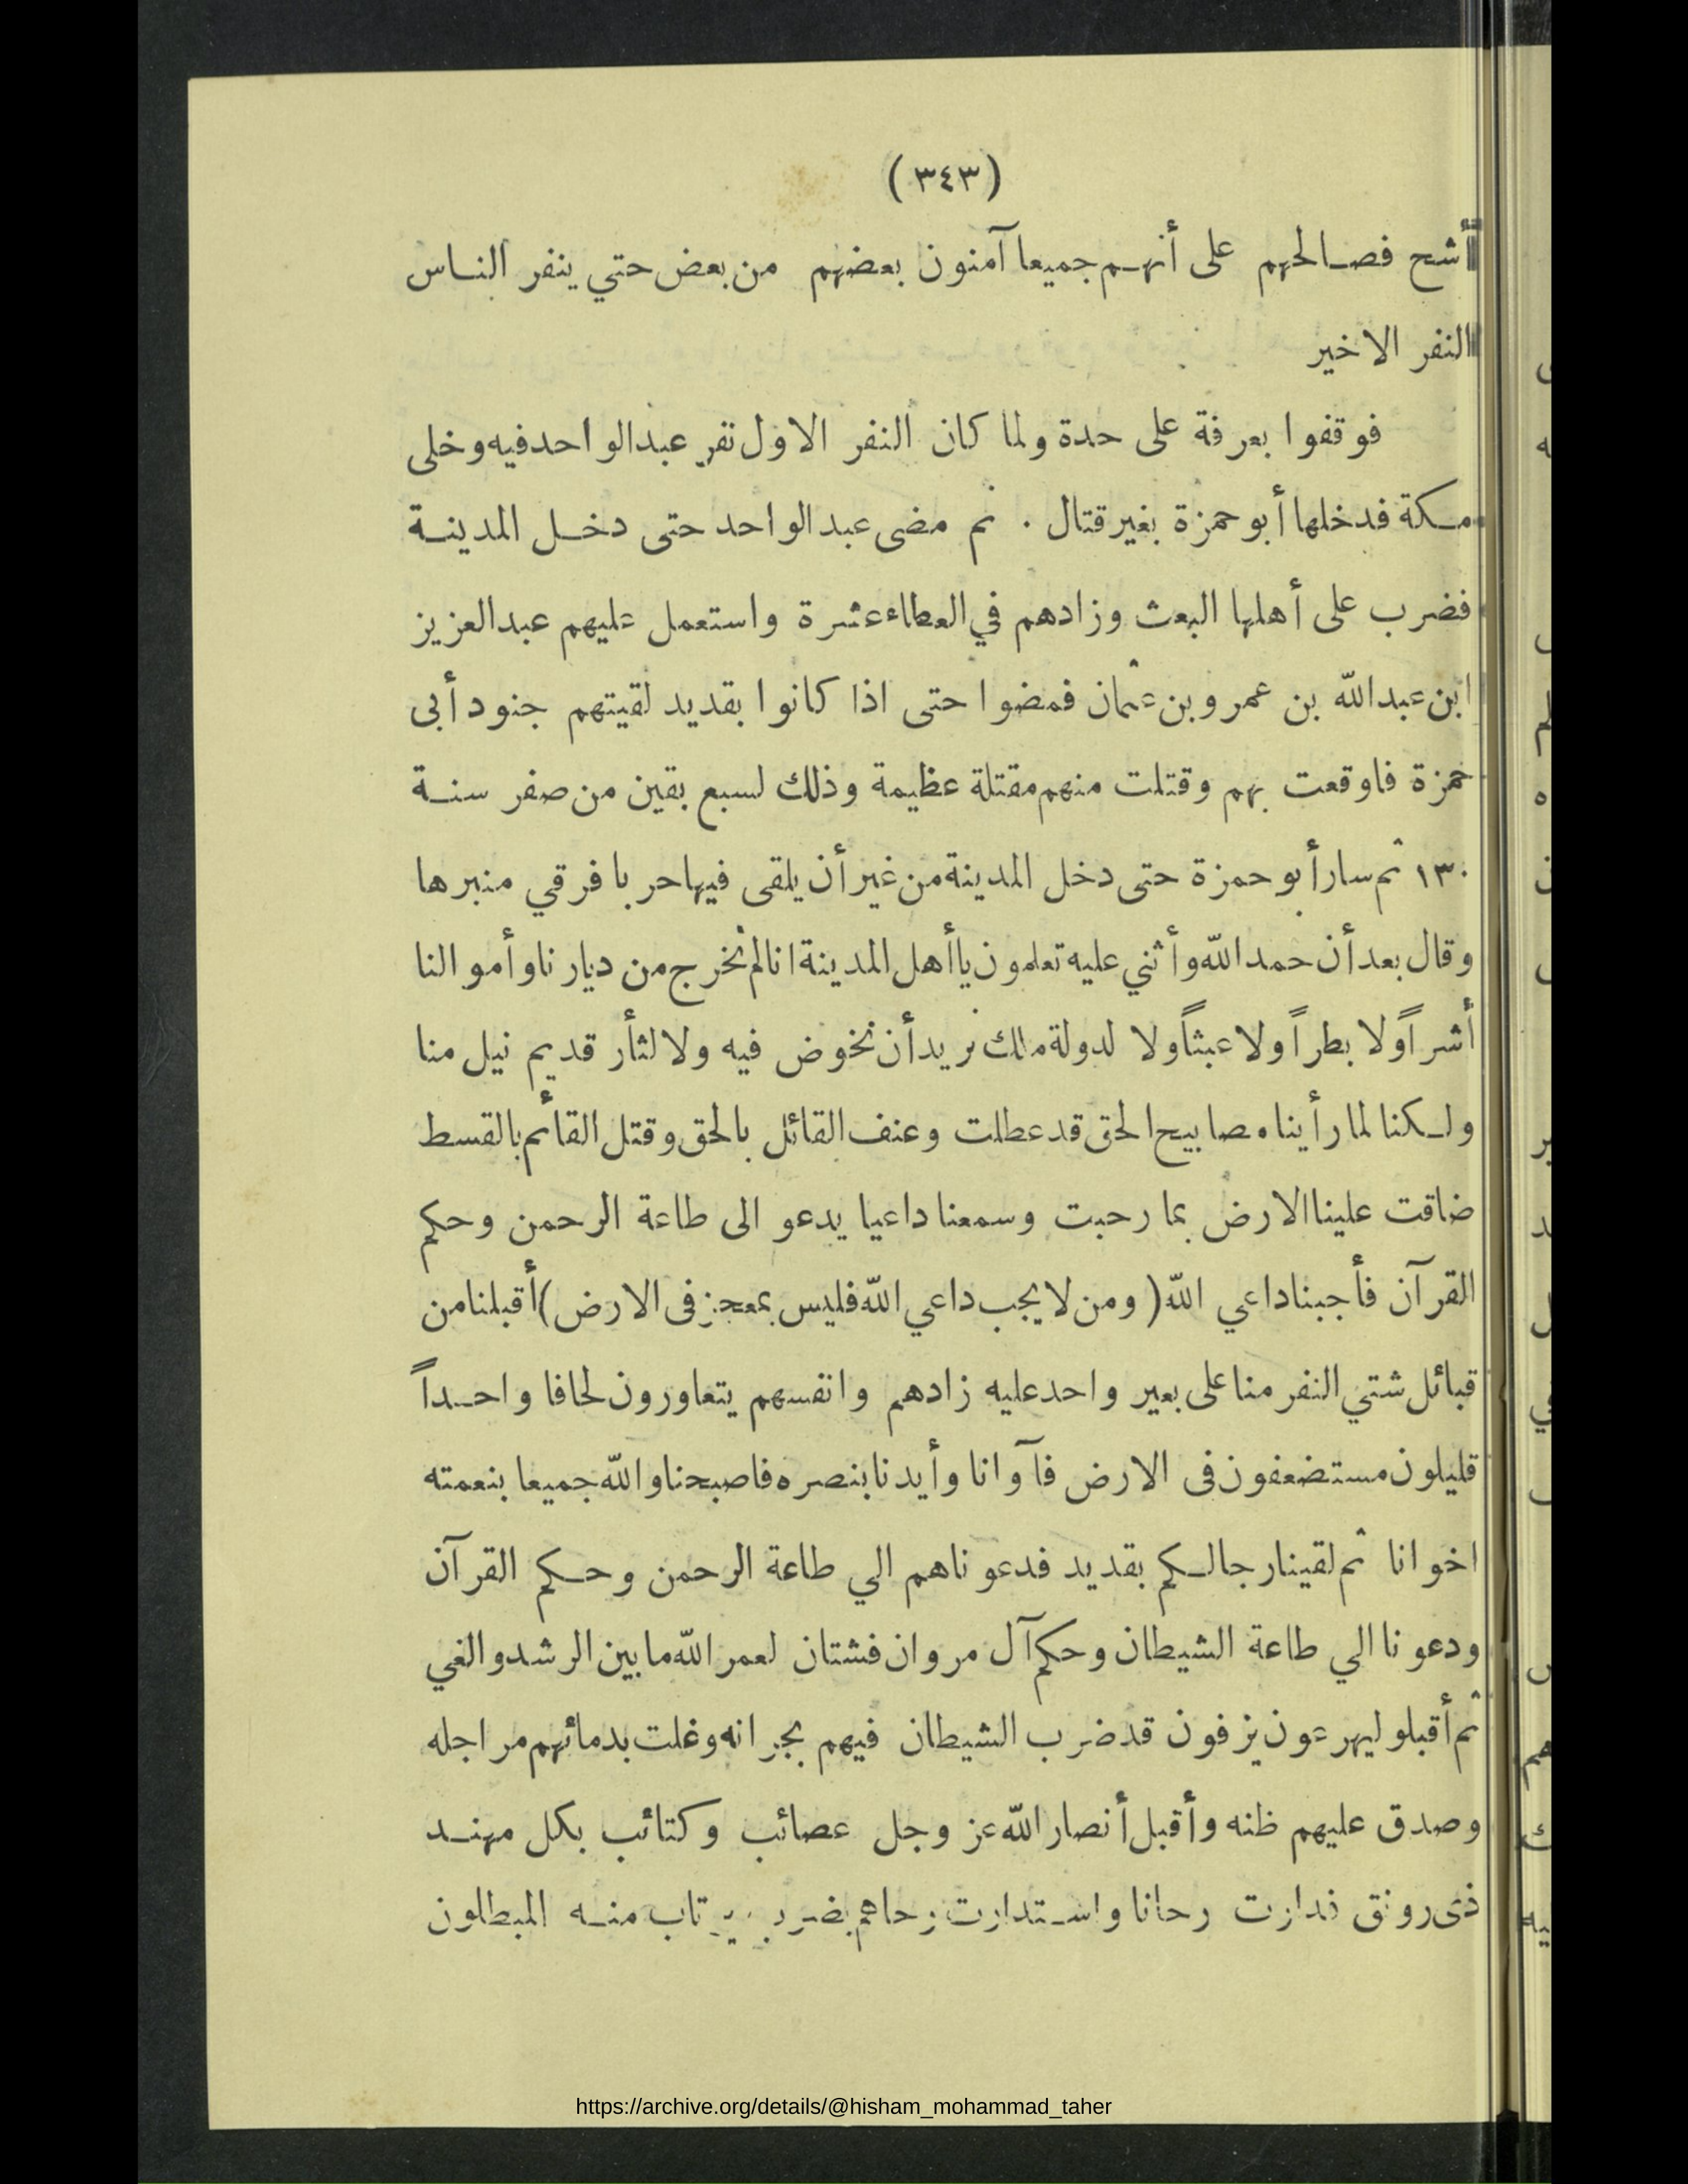 (٣٤٣)
أشح فصالحهم على أنهم جميعا آمنون بعضهم من بعض حتي ينفر الناس
النفر الاخير
فوقفوا بعرفة على حدة ولما كان النفر الاول نفر عبد الواحد فيه وخلى
مكة فدخلها أبو حمزة بغير قتال . ثم مضى عبد الواحد حتى دخل المدينة
فضرب على أهلها البعث وزادهم في العطاء عشرة واستعمل عليهم عبد العزيز
ابن عبد الله بن عمرو بن عثمان فمضوا حتى اذا كانوا بقديد لقيتهم جنود أبى
حمزة فاوقعت بهم وقتلت منهم مقتلة عظيمة وذلك لسبع بقين من صفر سنة
١٣٠ ثم سار أبو حمزة حتى دخل المدينة من غير أن يلقى فيها حربا فرقي منبرها
وقال بعد أن حمد الله وأثني عليه تعلمون يا أهل المدينة انا لم نخرج من ديارنا وأموالنا
أشراً ولا بطراً ولا عبثاً ولا لدولة ملك نريد أن نخوض فيه ولا لثأر قديم نيل منا
ولكنا لما رأينا مصابيح الحق قد عطلت وعنف القائل بالحق وقتل القائم بالقسط
ضاقت علينا الارض بما رحبت وسمعنا داعيا يدعو الى طاعة الرحمن وحكم
القرآن فأجبنا داعي الله ( ومن لا يجب داعي الله فليس بمعجز فى الارض ) أقبلنا من
قبائل شتي النفر منا على بعير واحد عليه زادهم وانفسهم يتعاورون لحافا واحداً
قليلون مستضعفون فى الارض فآوانا وأيدنا بنصره فاصبحنا والله جميعا بنعمته
اخوانا ثم لقينا رجالكم بقديد فدعوناهم الي طاعة الرحمن وحكم القرآن
ودعونا الي طاعة الشيطان وحكم آل مروان فشتان لعمر الله ما بين الرشد والغي
ثم أقبلو ليهرعون يزفون قد ضرب الشيطان فيهم بجرانه وغلت بدمائهم مراجله
وصدق عليهم ظنه وأقبل أنصار الله عز وجل عصائب وكتائب بكل مهند
ذى رونق فدارت رحانا واستدارت رحاهم بضرب يرتاب منه المبطلون
https://archive.org/details/@hisham_mohammad_taher